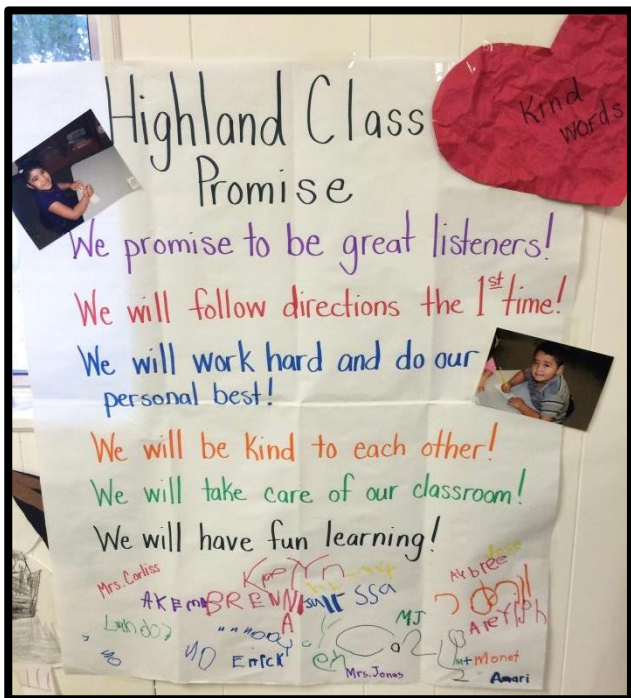 Highland Class
Promise
Kind
words
We promise to be great listeners!
We will follow directions the 1st time!
We will work hard and do our
personal best!
We will be kind to each other!
We will take care of our classroom!
We will have fun learning!
Mrs. Corliss
BRENNA
ssa
Aubree
MJ
Errick
Mrs. Jones
Monet
Amari